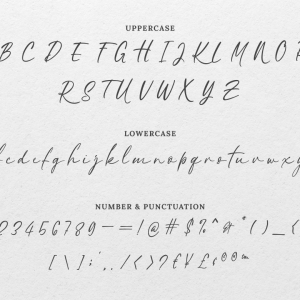 UPPERCASE
B C D E F G H I J K L M N O P
R S T U V W X Y Z
LOWERCASE
bcdefghijklmnopqrstuvwxy
NUMBER & PUNCTUATION
23456789-=!@#$%^&*()_
[\];',./<>?€¥£¢